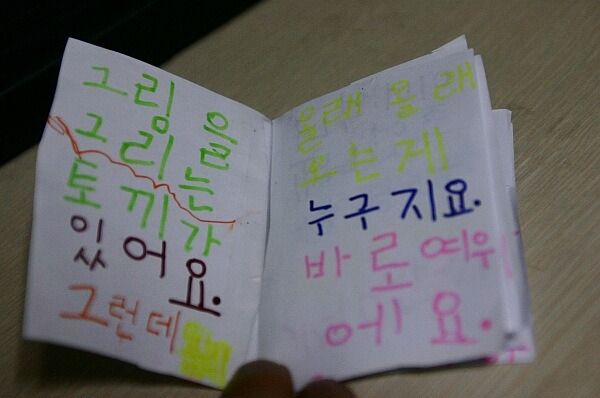 그림을
그리는
토끼가
있어요.
그런데
몰래 몰래
오는게
누구지요.
바로여우
에요.